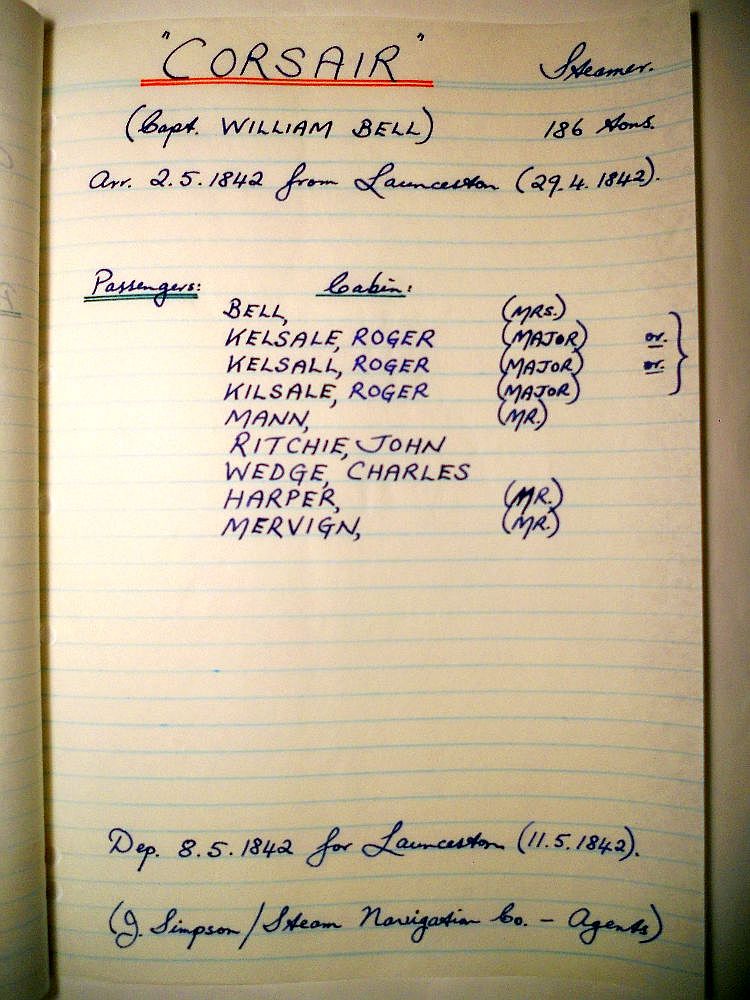 "CORSAIR" Steamer.
(Capt. WILLIAM BELL) 186 tons.
Arr. 2.5.1842 from Launceston (29.4.1842).
Passengers: Cabin:
BELL, (MRS.)
KELSALE, ROGER (MAJOR) or.
KELSALL, ROGER (MAJOR) or.
KILSALE, ROGER (MAJOR)
MANN, (MR.)
RITCHIE, JOHN
WEDGE, CHARLES
HARPER, (MR.)
MERVIGN, (MR.)
Dep. 8.5.1842 for Launceston (11.5.1842).
(J. Simpson / Steam Navigation Co. - Agents)